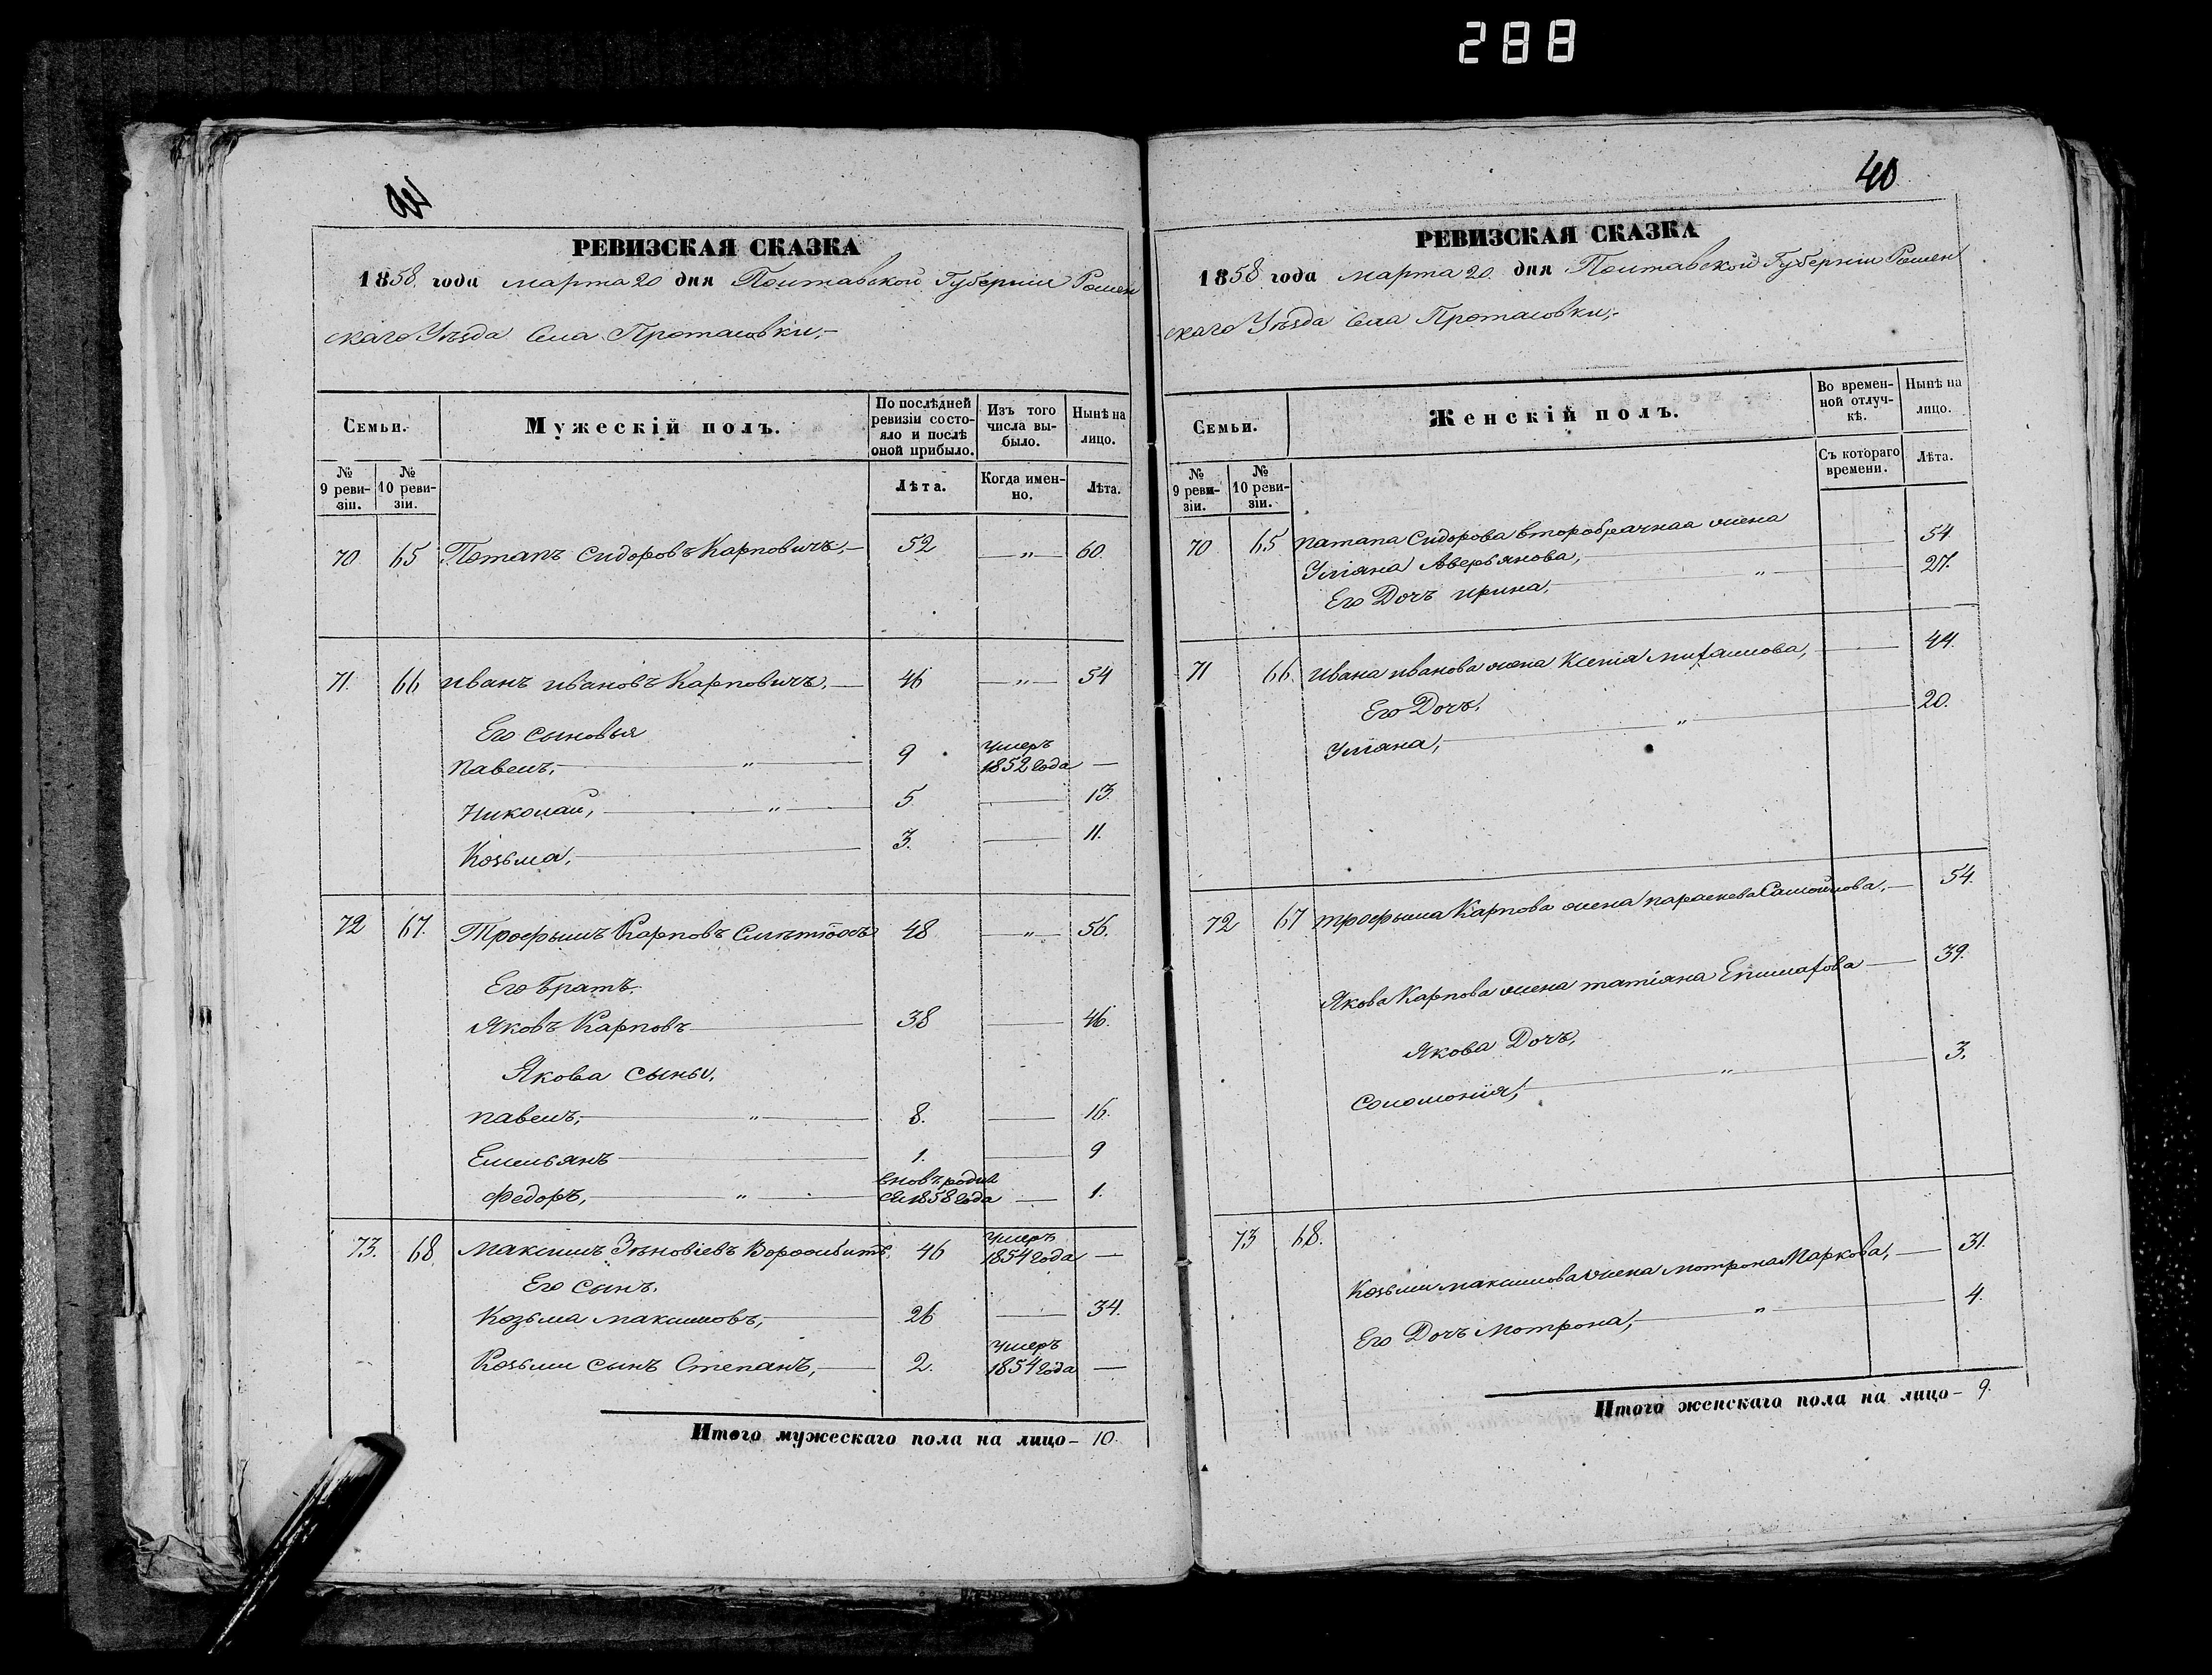 288
40
РЕВИЗСКАЯ СКАЗКА
1858 года марта 20 дня Полтавской Губерніи Ромен
скаго Уѣзда Села Протасовки,-
Семьи.
Мужескій полъ.
По послѣдней ревизіи состояло и послѣ оной прибыло.
Изъ того числа выбыло.
Нынѣ на лицо.
№ 9 ревизіи.
№ 10 ревизіи.
Лѣта.
Когда именно.
Лѣта.
70 65 Потапъ Сидоровъ Карповичъ,— 52 —„— 60.
71. 66 иванъ ивановъ Карповичъ.— 46 —„— 54
Его сыновья
павелъ,— „ — 9 умеръ 1852 года —
Николай,— „ — 5 — 13.
Козьма,— 3. — 11.
72 67. Трофымъ Карповъ 48 —„— 56.
Его Братъ.
Яковъ Карповъ — 38 — 46.
Якова сыны,
павелъ,— „ — 8. — 16.
Емельянъ — 1. — 9
Федоръ,— „ — вновь родил ся 1858 года — 1.
73. 68 Максимъ Зѣновіевъ 46 умеръ 1854 года —
Его сынъ.
Козьма максимовъ,— 26 — 34.
Козьми сынъ Степанъ,— 2. умеръ 1854 года —
Итого мужескаго пола на лицо — 10.
РЕВИЗСКАЯ СКАЗКА
1858 года марта 20. дня Полтавской Губерніи Ромен
скаго Уѣзда Села Протасовки,-
Семьи.
Женскій полъ.
Во временной отлучкѣ.
Нынѣ на лицо.
№ 9 ревизіи.
№ 10 ревизіи.
Съ котораго времени.
Лѣта.
70 65 патапа Сидорова второбрачная жена
Уліяна Аверьянова,— 54
Его Дочъ ирина,— „ — 27.
71 66. Ивана иванова жена Ксенія — 44.
Его Дочъ.
Уліяна,— „ — 20.
72 67 трофыма Карпова жена параскева Самойлова,— 54.
Якова Карпова жена татіяна — 39.
Якова Дочъ,
Соломонія,— „ — 3.
73 68.
Козьми максимова жена мотрона Маркова,— 31.
Его Дочъ мотрона,— „ — 4.
Итого женскаго пола на лицо — 9.